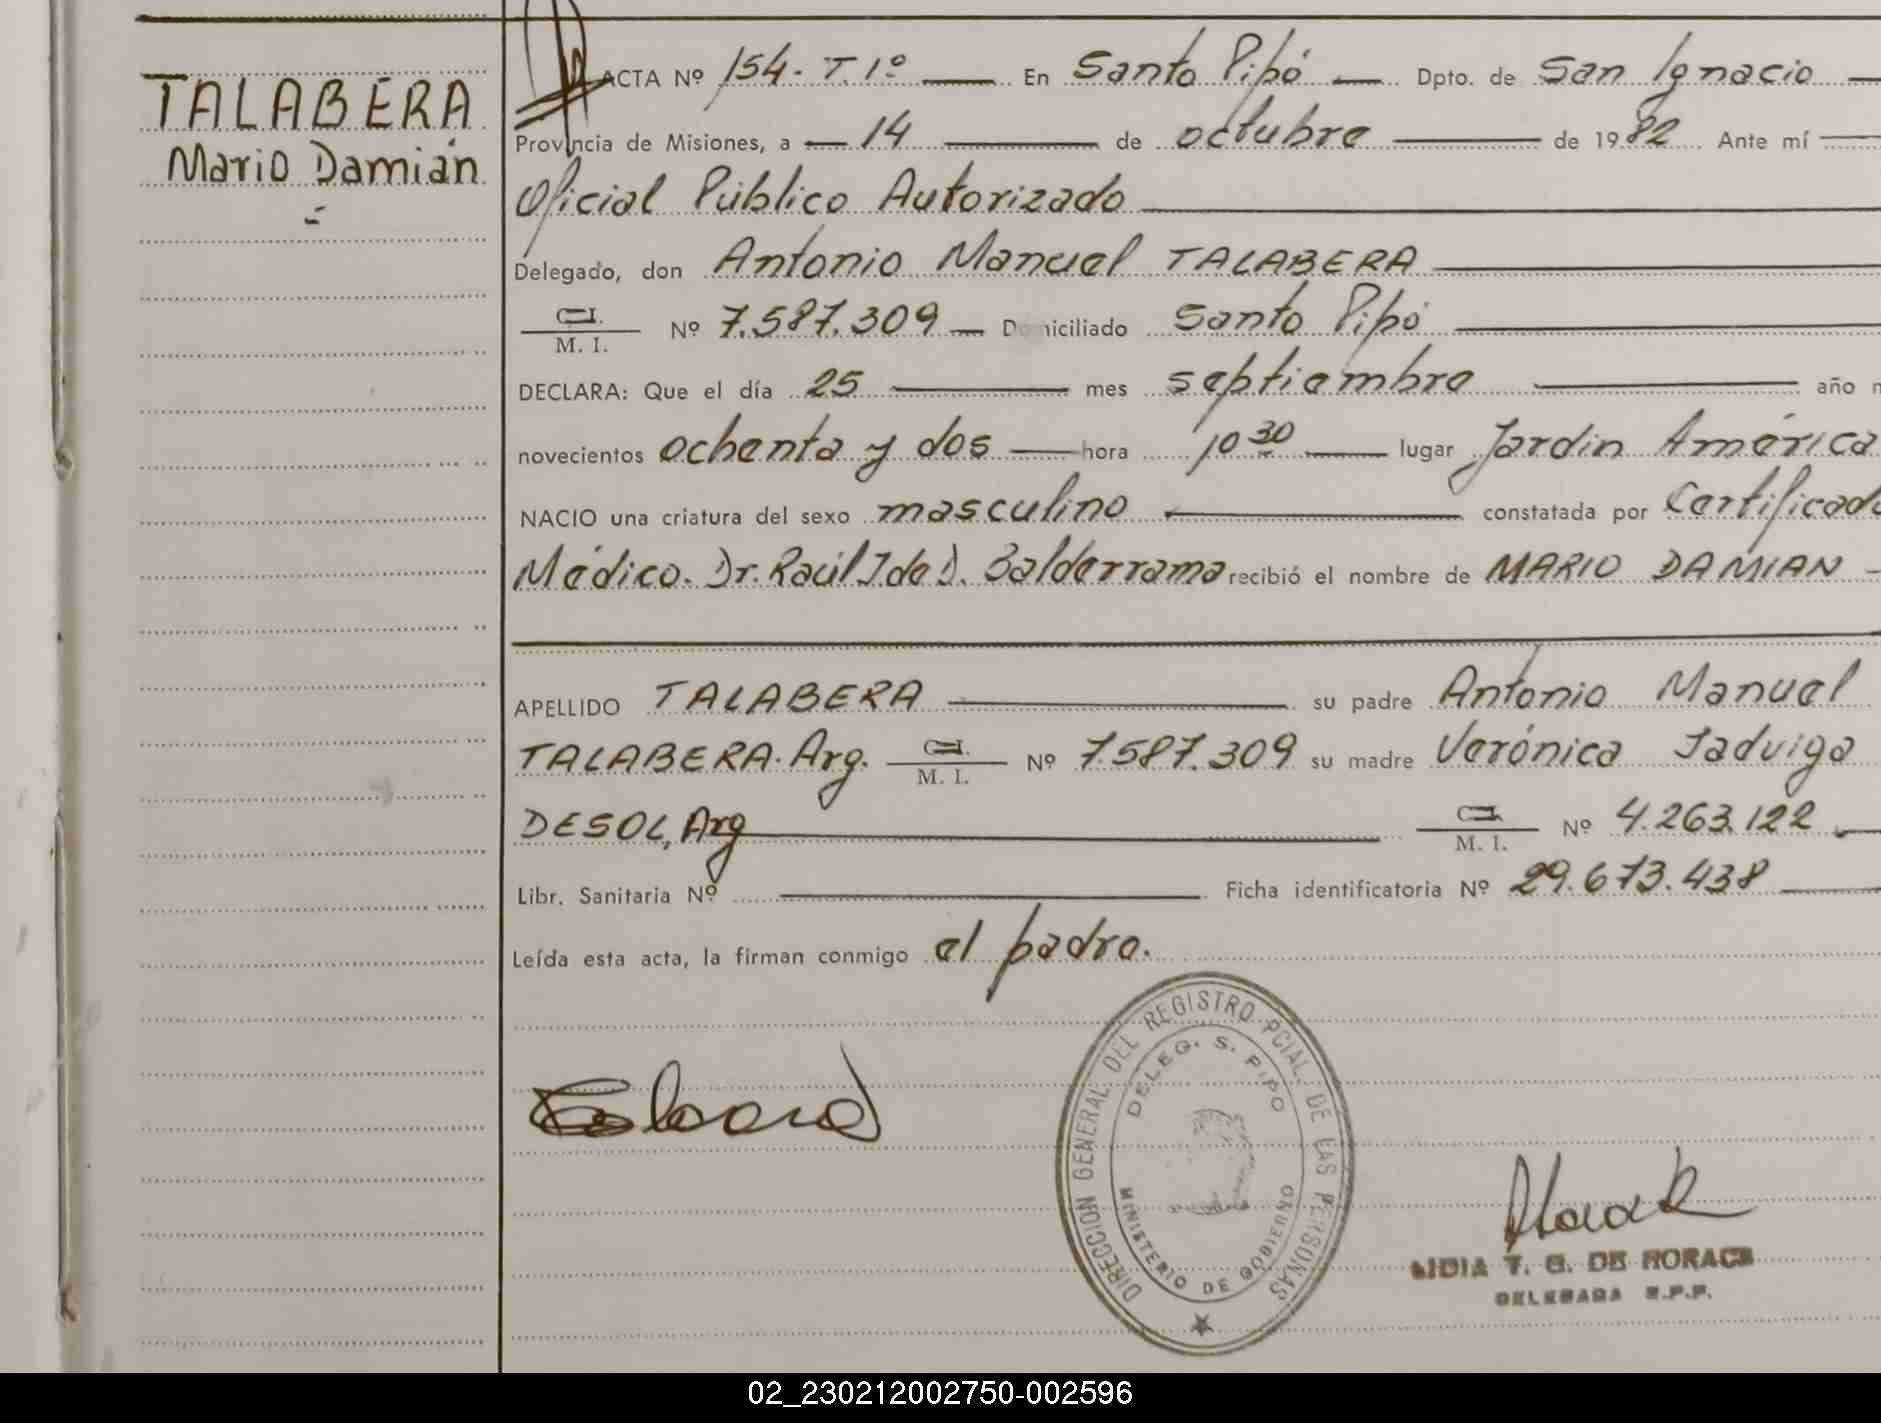 TALABERA
Mario Damián
ACTA Nº 154 - T. 1º En Santo Pipó Dpto. de San Ignacio
Provincia de Misiones, a 14 de octubre de 1982 Ante mí
Oficial Público Autorizado
Delegado, don Antonio Manuel TALABERA
C.I.
M. I. Nº 7.587.309 Domiciliado Santo Pipó
DECLARA: Que el día 25 mes septiembre año
novecientos ochenta y dos hora 10 30 lugar Jardin América
NACIO una criatura del sexo masculino constatada por Certificado
Médico. Dr. Raúl J. de D. Balderrama recibió el nombre de MARIO DAMIAN
APELLIDO TALABERA su padre Antonio Manuel
TALABERA. Arg. C.I. M. I. Nº 7.587.309 su madre Verónica Jadviga
DESOL, Arg C.I. M. I. Nº 4.263.122
Libr. Sanitaria Nº Ficha identificatoria Nº 29.673.438
Leída esta acta, la firman conmigo el padre.
DIRECCION GENERAL DEL REGISTRO PCIAL. DE LAS PERSONAS
DELEG. S. PIPO
MINISTERIO DE GOBIERNO
LIDIA T. G. DE HORACK
DELEGADA R.P.P.
02_230212002750-002596